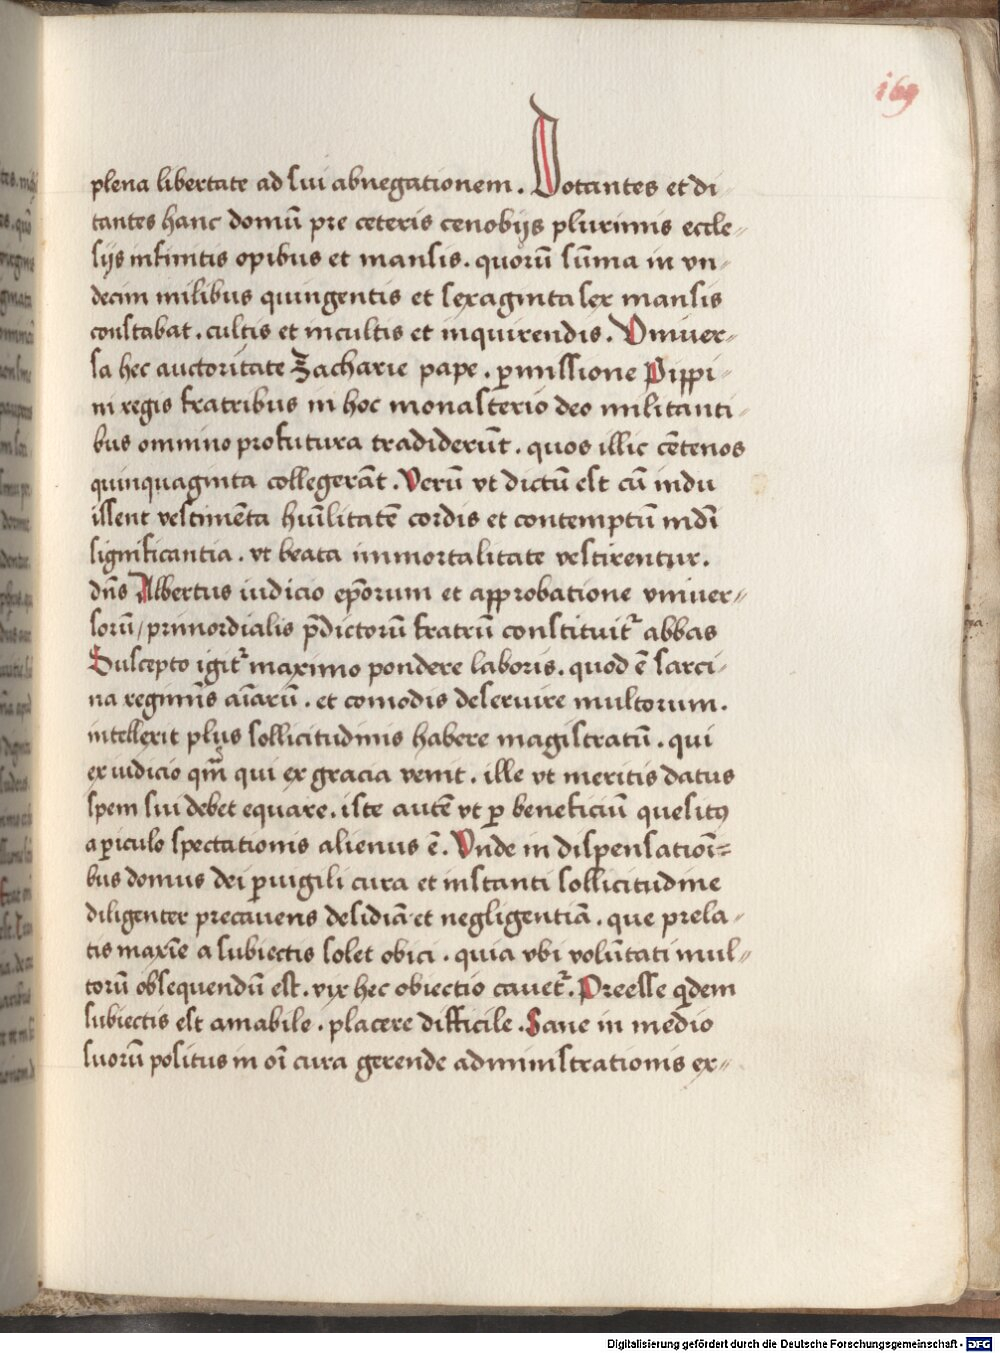 169
plena libertate ad sui abnegationem. Dotantes et di-
tantes hanc domū pre ceteris cenobijs plurimis eccle-
sijs infinitis opibus et mansis. quorū sūma in vn-
decim milibus quingentis et sexaginta sex mansis
constabat. cultis et incultis et inquirendis. Vniuer-
sa hec auctoritate Zacharie pape. ꝑmissione Pippi-
ni regis fratribus in hoc monasterio deo militanti-
bus omnino profutura tradiderūt. quos illic cētenos
quinquaginta collegerāt. Verū vt dictū est cū indu
issent vestimēta hūilitatē cordis et contemptū mdī
significantia. vt beata immortalitate vestirentur.
dn̄s Albertus iudicio ep̄orum et approbatione vniuer-
sorū/primordialis p̄dictorū fratrū constituit᷑ abbas
Suscepto igit᷑ maximo pondere laboris. quod ē sarci-
na regimīs aīarū. et comodis deseruire multorum.
intellexit plus sollicitudinis habere magistratū. qui
ex iudicio qm̄ qui ex gracia venit. ille vt meritis datus
spem sui debet equare. iste autē vt ꝑ beneficiū quesitꝰ
a ꝑiculo spectationis alienus ē. Vnde in dispensatioī=
bus domus dei ꝑuigili cura et instanti sollicitudine
diligenter precauens desidiā et negligentiā. que prela-
tis maxīe a subiectis solet obici. quia vbi volūtati mul-
torū obsequendū est. vix hec obiectio cauet᷑. Preesse qͥdem
subiectis est amabile. placere difficile. Sane in medio
suorū positus in oī cura gerende administrationis ex-
Digitalisierung gefördert durch die Deutsche Forschungsgemeinschaft - DFG